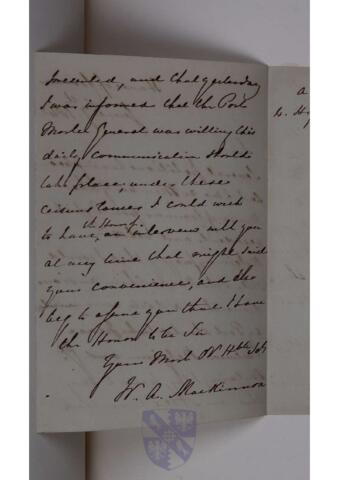 incented, and that yesterday
I was informed that the Post
Master General was willing this
daily communication should
take place, under these
circumstances I could wish
to have, the Honor of
an interview with you
at any time that might suit
your convenience, and also
beg to assure you that I have
the Honor to be Sir
Your Most Ob. Hble Sert
W. A. Mackinnon
a